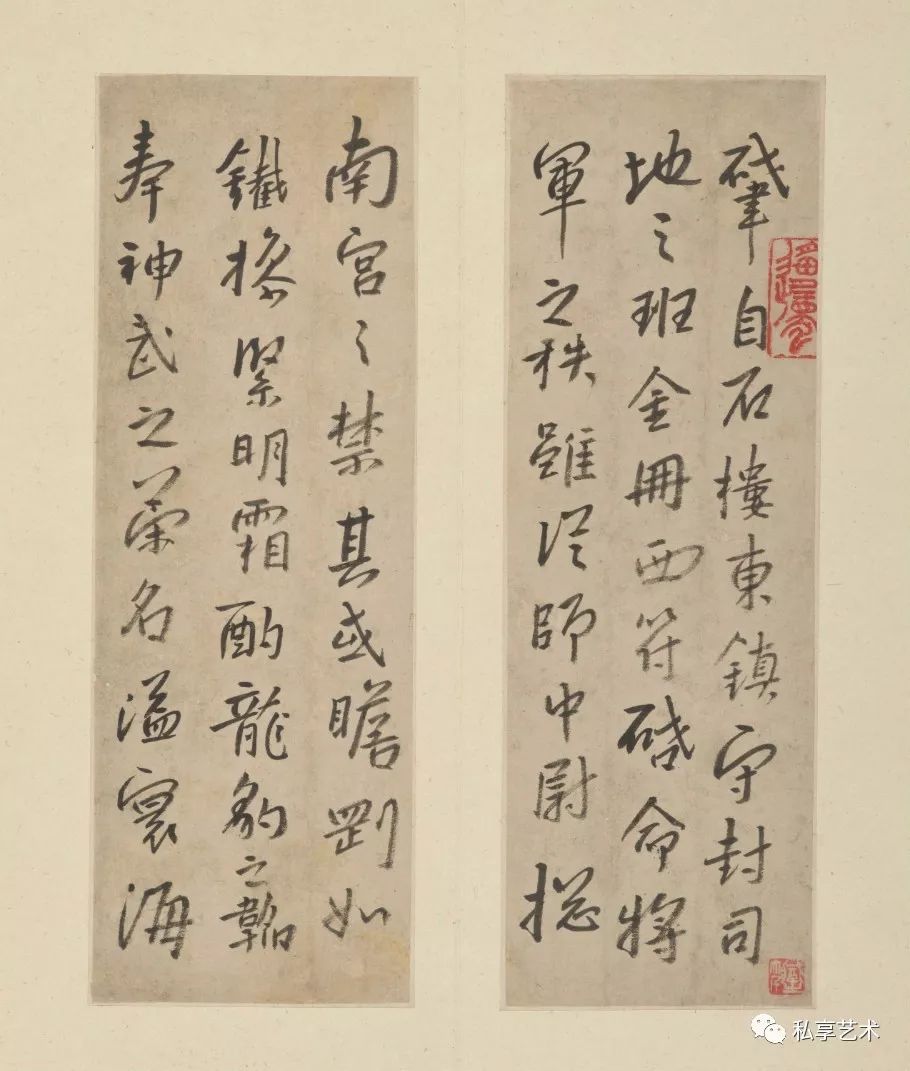 肇自石樓東鎮守封司
地之班金冊西符啓命將
軍之秩雖從師中尉捴
南宮之禁其或膽剛如
鐵操緊明霜酌龍豹之韜
奉神武之榮名溢寰海
私享艺术